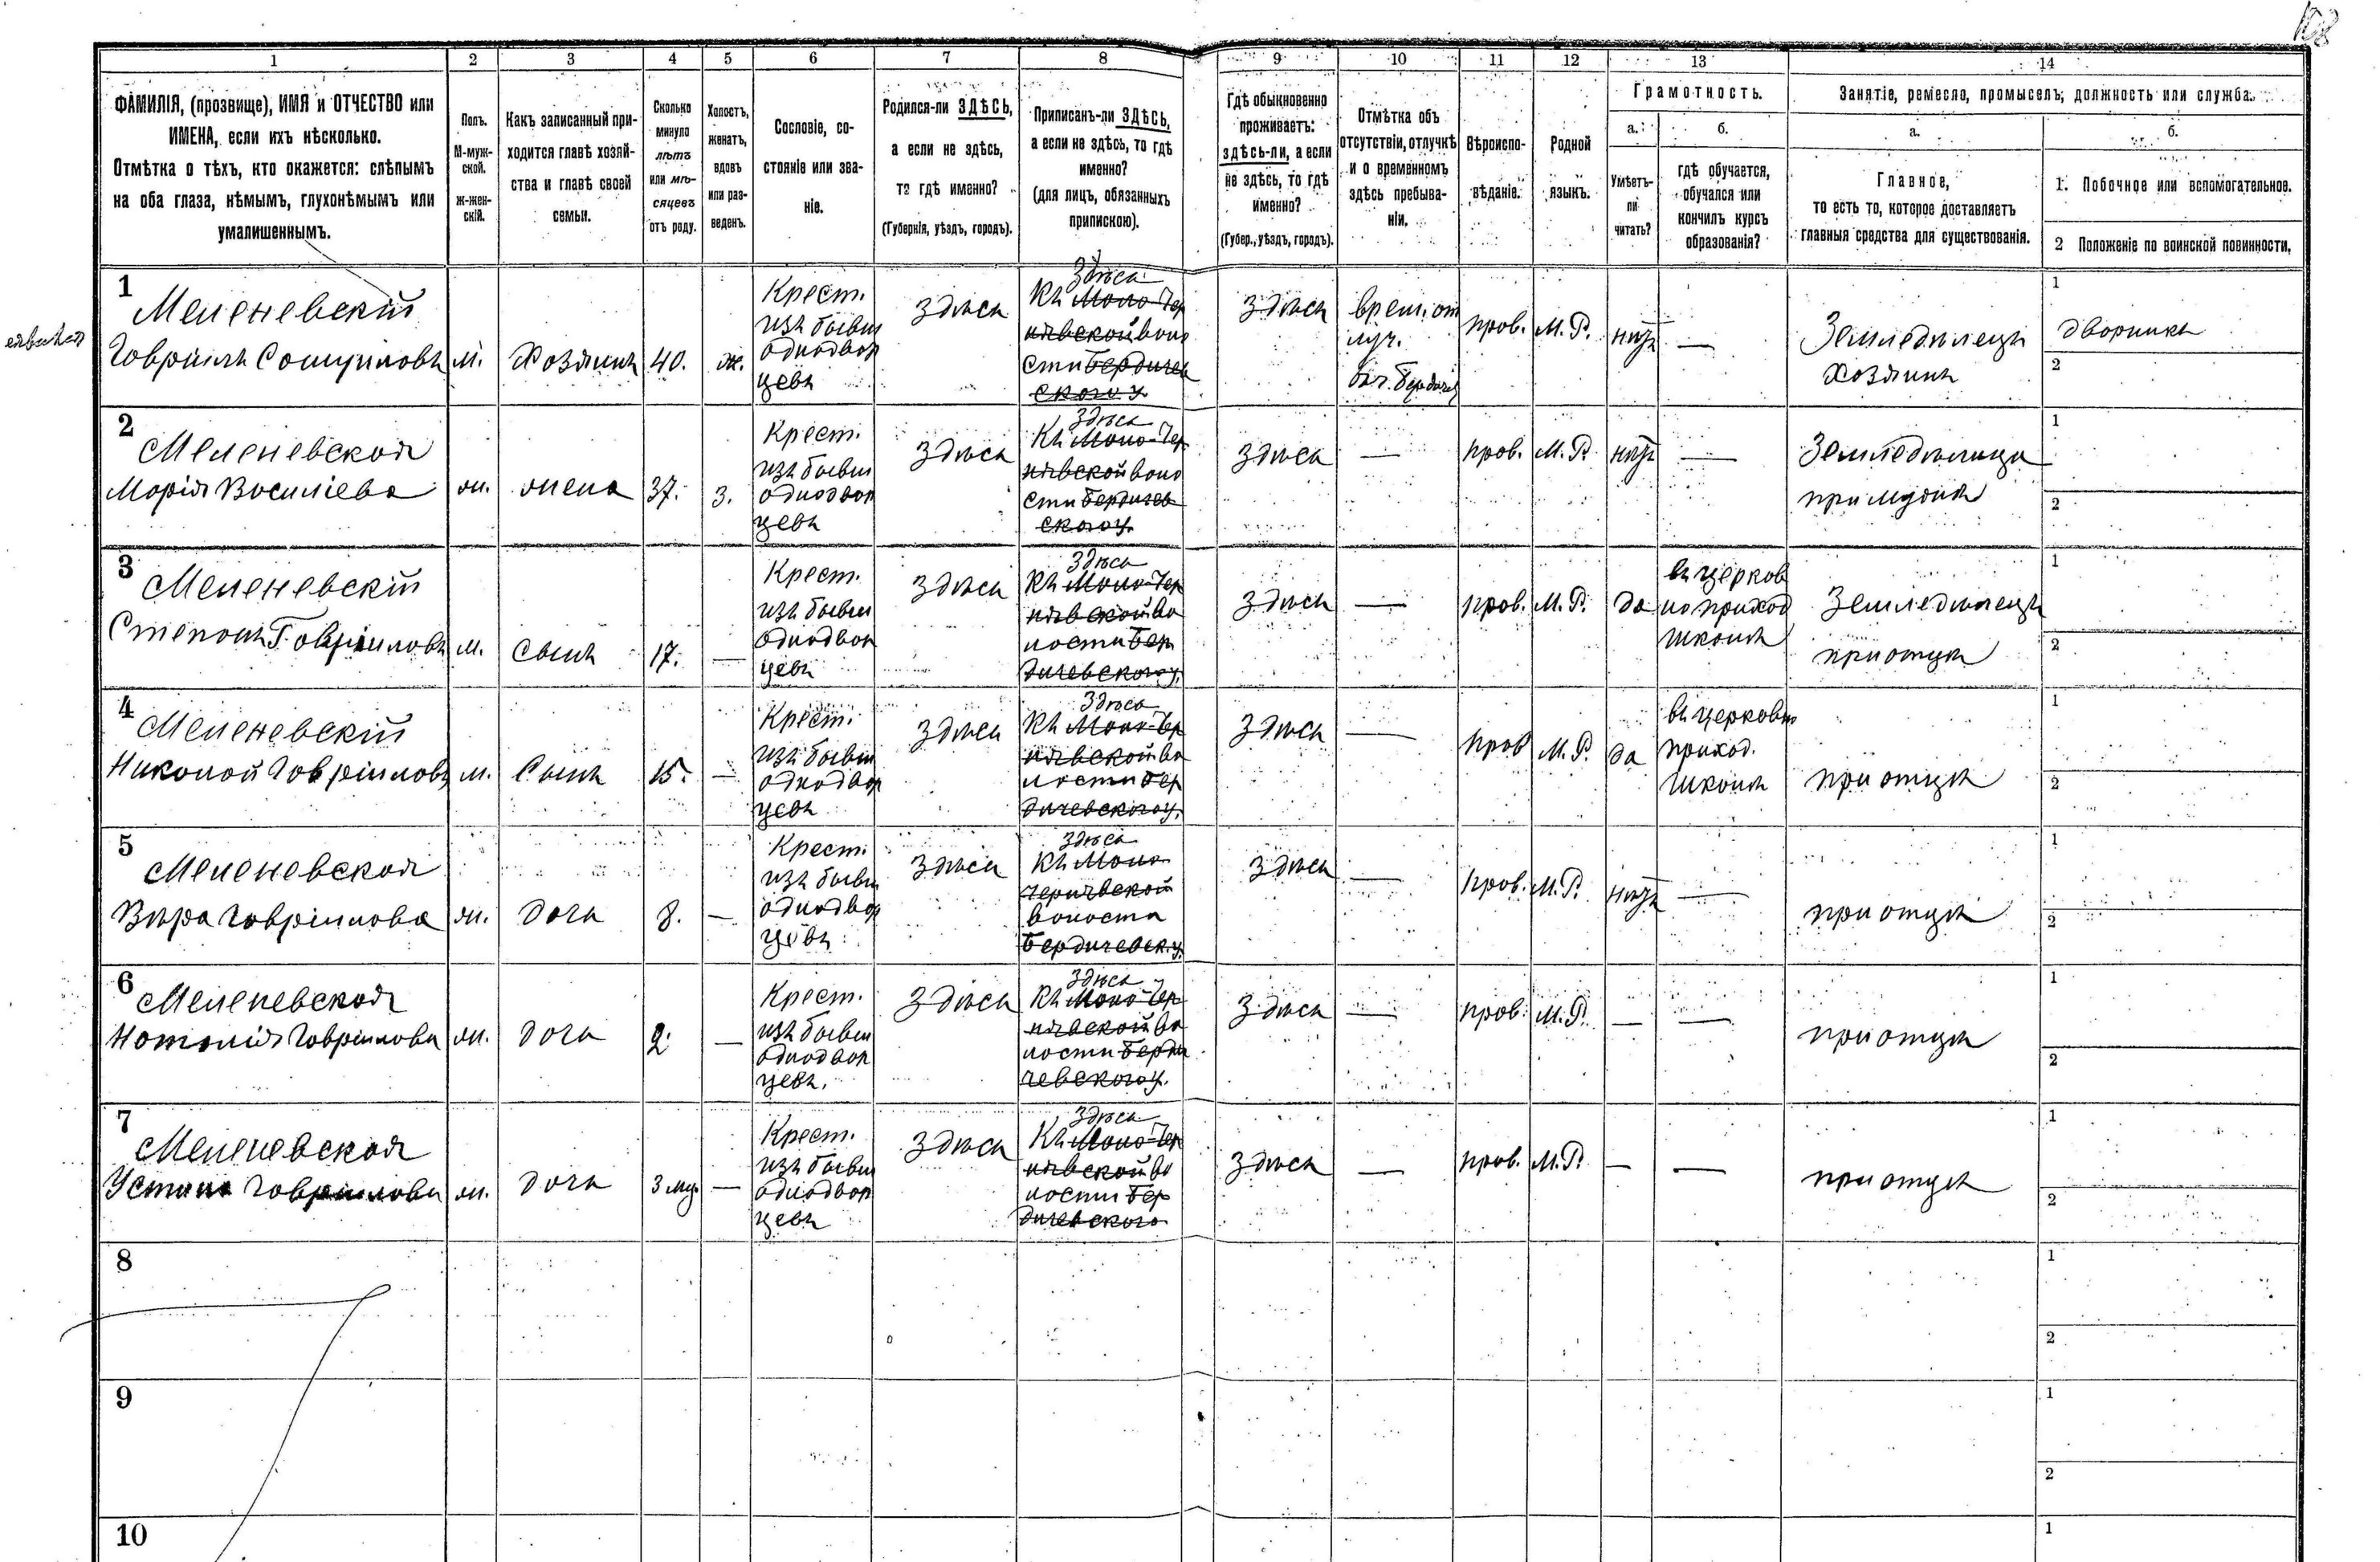 108
1 2 3 4 5 6 7 8 9 10 11 12 13 14
ФАМИЛІЯ, (прозвище), ИМЯ и ОТЧЕСТВО или
ИМЕНА, если ихъ нѣсколько.
Отмѣтка о тѣхъ, кто окажется: слѣпымъ
на оба глаза, нѣмымъ, глухонѣмымъ или
умалишеннымъ.
Полъ.
М-муж-
ской.
ж-жен-
скій.
Какъ записанный при-
ходится главѣ хозяй-
ства и главѣ своей
семьи.
Сколько
минуло
лѣтъ
или мѣ-
сяцевъ
отъ роду.
Холостъ,
женатъ,
вдовъ
или раз-
веденъ.
Сословіе, со-
стояніе или зва-
ніе.
Родился-ли ЗДѢСЬ,
а если не здѣсь,
то гдѣ именно?
(Губернія, уѣздъ, городъ).
Приписанъ-ли ЗДѢСЬ,
а если не здѣсь, то гдѣ
именно?
(для лицъ, обязанныхъ
припискою).
Гдѣ обыкновенно
проживаетъ:
здѣсь-ли, а если
не здѣсь, то гдѣ
именно?
(Губер., уѣздъ, городъ).
Отмѣтка объ
отсутствіи, отлучкѣ
и о временномъ
здѣсь пребыва-
ніи.
Вѣроиспо-
вѣданіе.
Родной
языкъ.
Грамотность.
а.
Умѣетъ-
ли
читать?
б.
гдѣ обучается,
обучался или
кончилъ курсъ
образованія?
Занятіе, ремесло, промыселъ, должность или служба.
а.
Главное,
то есть то, которое доставляетъ
главныя средства для существованія.
б.
1. Побочное или вспомогательное.
2 Положеніе по воинской повинности.
1
Меленевскій
Гавріилъ Самуиловъ
м.
Хозяинъ
40.
ж.
Крест.
изъ бывш
однодвор
цевъ
здѣсь
Здѣсь
Къ Мало-Чер
нявской воло
сти Бердичев
ского у
здѣсь
врем. от
луч.
пров.
М. Р.
нѣтъ
—
Земледѣлецъ
хозяинъ
1
дворникъ
2
2
Меленевская
Марія Василіева
ж.
жена
37.
з.
Крест.
изъ бывш
однодвор
цевъ
здѣсь
Здѣсь
Къ Мало-Чер
нявской воло
сти Бердичев
ского у.
здѣсь
—
пров.
М. Р.
нѣтъ
—
Земледѣлица
при мужѣ
1
2
3
Меленевскій
Степанъ Гавріиловъ
м.
Сынъ
17.
—
Крест.
изъ бывш
однодвор
цевъ
здѣсь
Здѣсь
Къ Мало-Чер
нявской во
лости Бер
дичевского у.
здѣсь
—
пров.
М. Р.
да
въ церков
но приход
школѣ
Земледѣлецъ
при отцѣ
1
2
4
Меленевскій
Николай Гавріиловъ
м.
Сынъ
15.
—
Крест.
изъ бывш
однодвор
цевъ
здѣсь
Здѣсь
Къ Мало-Чер
нявской во
лости Бер
дичевского у.
здѣсь
—
пров
М. Р.
да
въ церковно
приход.
школѣ
при отцѣ
1
2
5
Меленевская
Вѣра Гавріилова
ж.
дочь
8.
—
Крест.
изъ бывш
однодвор
цевъ
здѣсь
Здѣсь
Къ Мало
Чернявской
волости
Бердичевск. у.
здѣсь
—
пров.
М. Р.
нѣтъ
—
при отцѣ
1
2
6
Меленевская
Наталія Гавріилова
ж.
дочь
2.
—
Крест.
изъ бывш
однодвор
цевъ.
здѣсь
Здѣсь
Къ Мало-Чер
нявской во
лости Берди
чевского у.
здѣсь
—
пров.
М. Р.
—
—
при отцѣ
1
2
7
Меленевская
Устина Гавріилова
ж.
дочь
3 мѣ.
—
Крест.
изъ бывш
однодвор
цевъ
здѣсь
Здѣсь
Къ Мало-Чер
нявской во
лости Бер
дичевского
здѣсь
—
пров.
М. Р.
—
—
при отцѣ
1
2
8
1
2
9
1
2
10
1